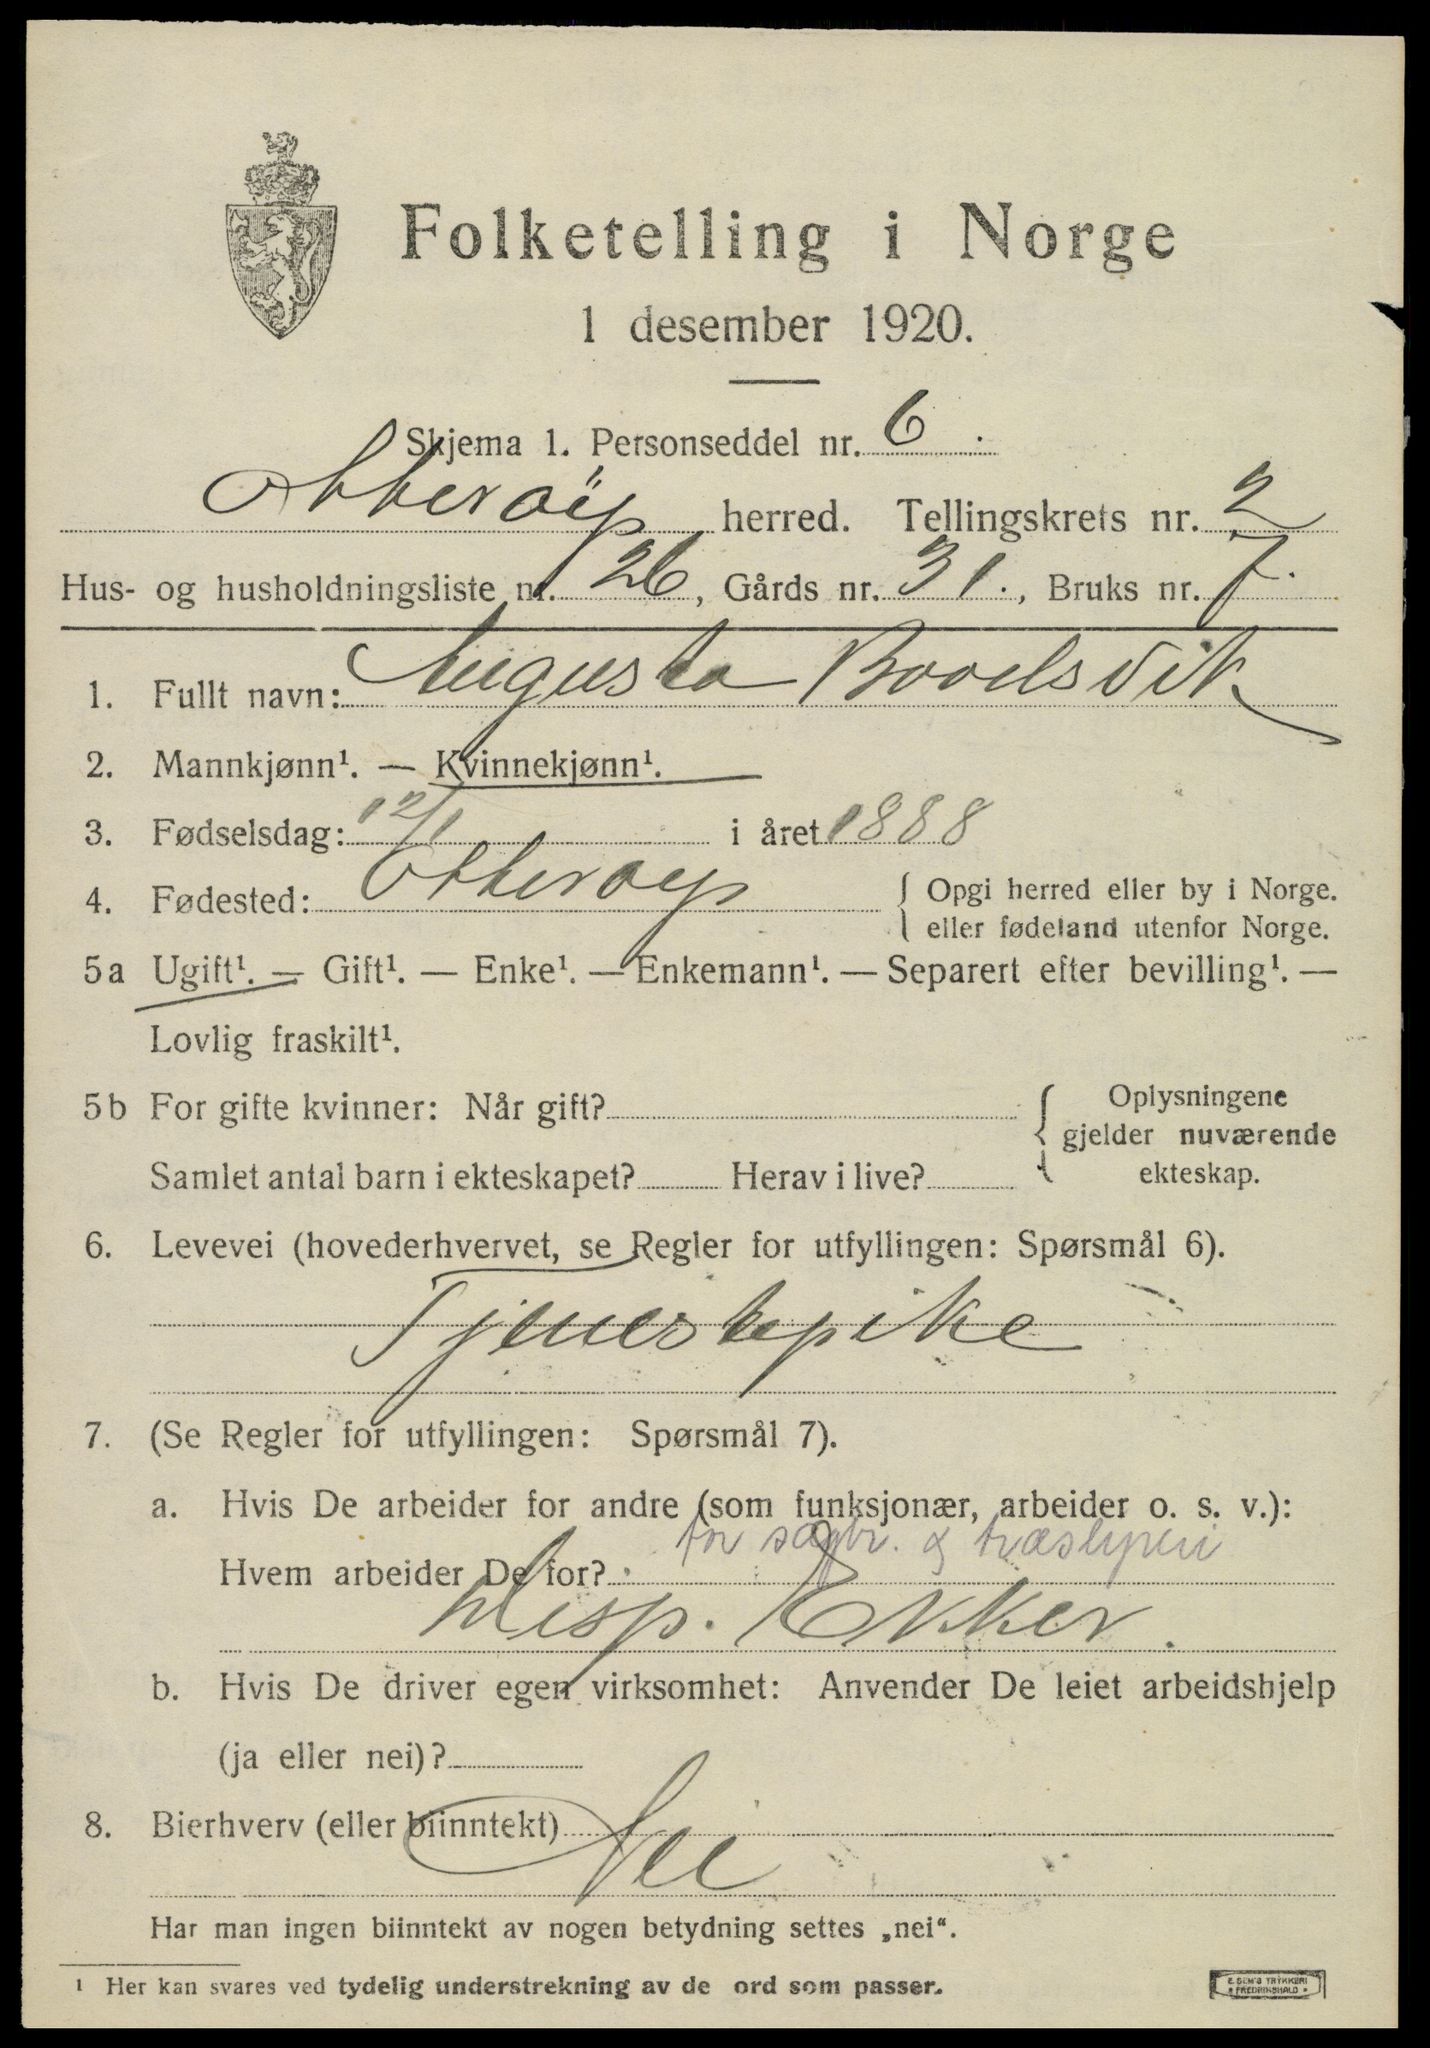 Folketelling i Norge
1 desember 1920.
Skjema 1. Personseddel nr. 6.
Otterøy herred. Tellingskrets nr. 2
Hus- og husholdningsliste nr. 26, Gårds nr. 31., Bruks nr. 7.
1. Fullt navn: Augusta Bodsvik
2. Mannkjønn¹. — Kvinnekjønn¹.
3. Fødselsdag: 12/1 i året 1888
4. Fødested: Otterøy { Opgi herred eller by i Norge.
eller fødeland utenfor Norge.
5a Ugift¹. — Gift¹. — Enke¹. — Enkemann¹. — Separert efter bevilling¹. —
Lovlig fraskilt¹.
5b For gifte kvinner: Når gift? { Oplysningene
gjelder nuværende
Samlet antal barn i ekteskapet? Herav i live? ekteskap.
6. Levevei (hovederhvervet, se Regler for utfyllingen: Spørsmål 6).
Tjenestepike
7. (Se Regler for utfyllingen: Spørsmål 7).
a. Hvis De arbeider for andre (som funksjonær, arbeider o. s. v.):
for sagbr. & træsliperi
Hvem arbeider De for?
Disp. Ekker.
b. Hvis De driver egen virksomhet: Anvender De leiet arbeidshjelp
(ja eller nei)?
8. Bierhverv (eller biinntekt) Nei
Har man ingen biinntekt av nogen betydning settes „nei“.
¹ Her kan svares ved tydelig understrekning av de ord som passer.
E. SEM'S TRYKKERI
* FREDRIKSHALD *